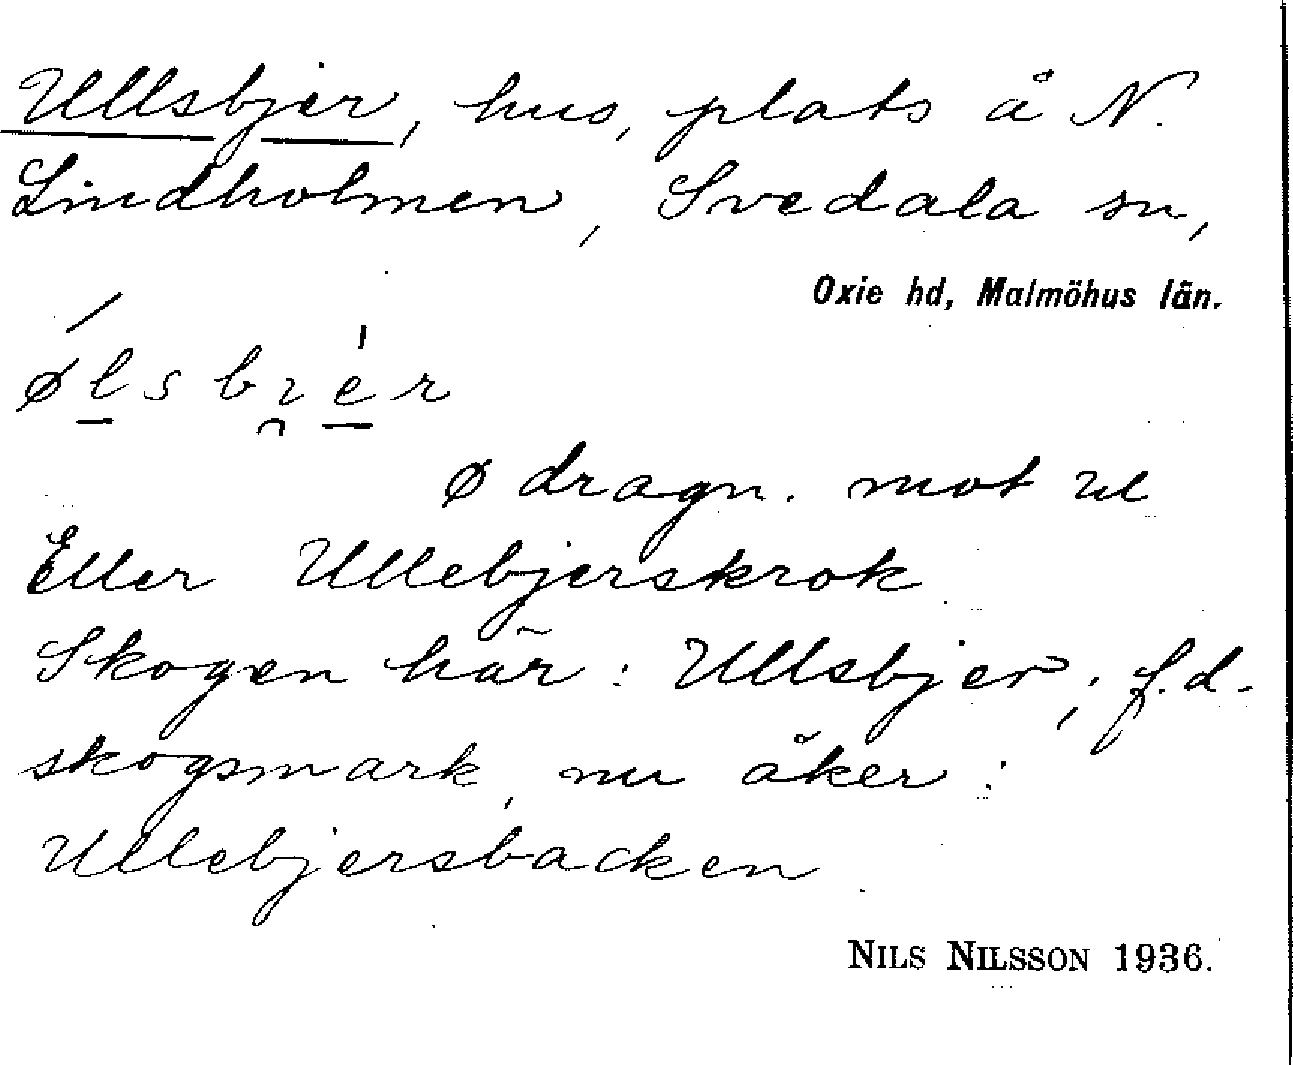 Ullsbjer, hus, plats å N.
Lindholmen, Svedala sn,
Oxie hd, Malmöhus län.
ǿl̠sbı̯é̠r
ø dragn. mot u
Eller Ullebjerskrok
Skogen här: Ullsbjer; f.d.
skogsmark, nu åker:
Ullebjersbacken
NILS NILSSON 1936.